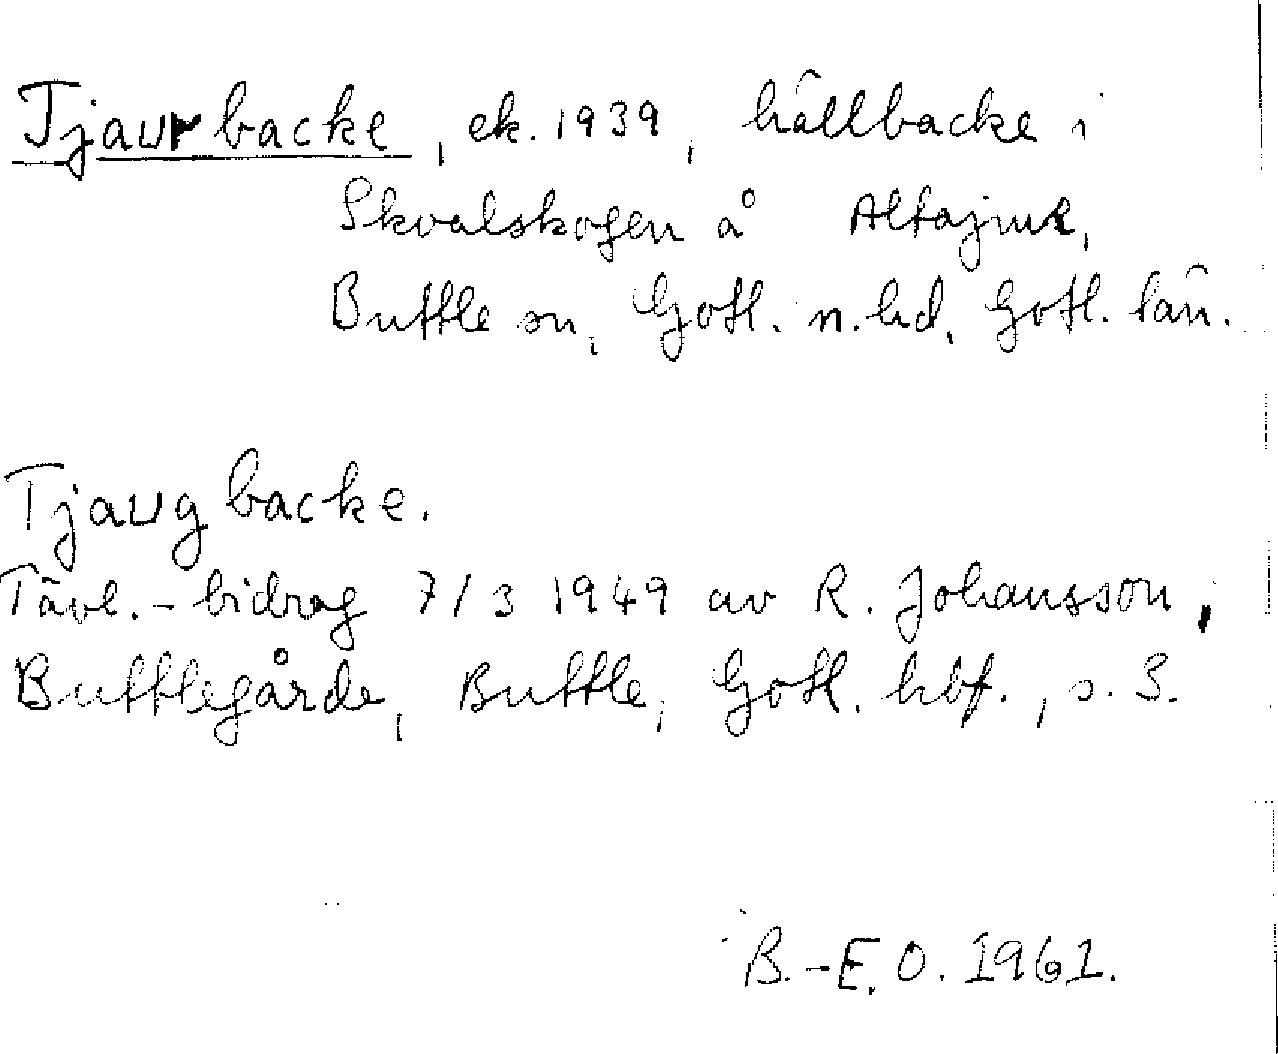 Tjaurbacke, ek. 1939, hällbacke i
Skvalskogen å Altajme,
Buttle sn, Gotl. n. hd, Gotl. län.
Tjaugbacke.
Tävl.-bidrag 7/3 1949 av R. Johansson,
Buttlegårde, Buttle, Gotl. hbf., s. 3.
B.-E. O. 1961.